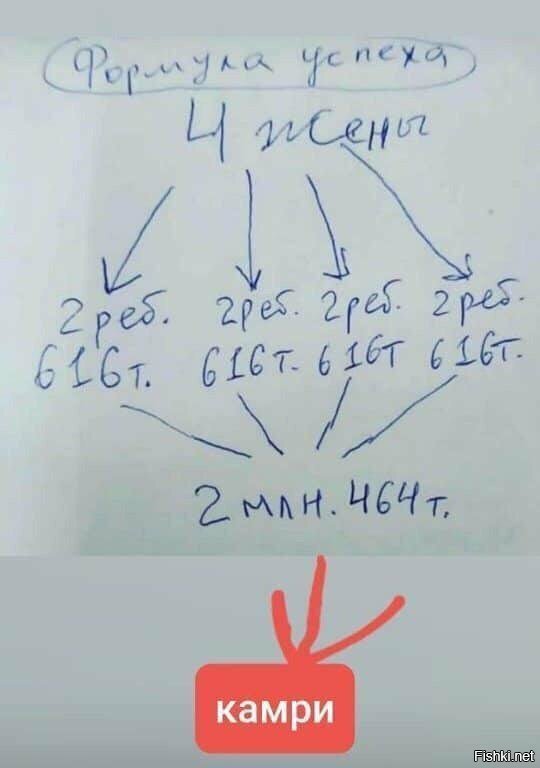 Формула успеха
4 жены
2 реб. 2 реб. 2 реб. 2 реб.
616т. 616т. 616т 616т.
2 млн. 464т.
камри
Fishki.net